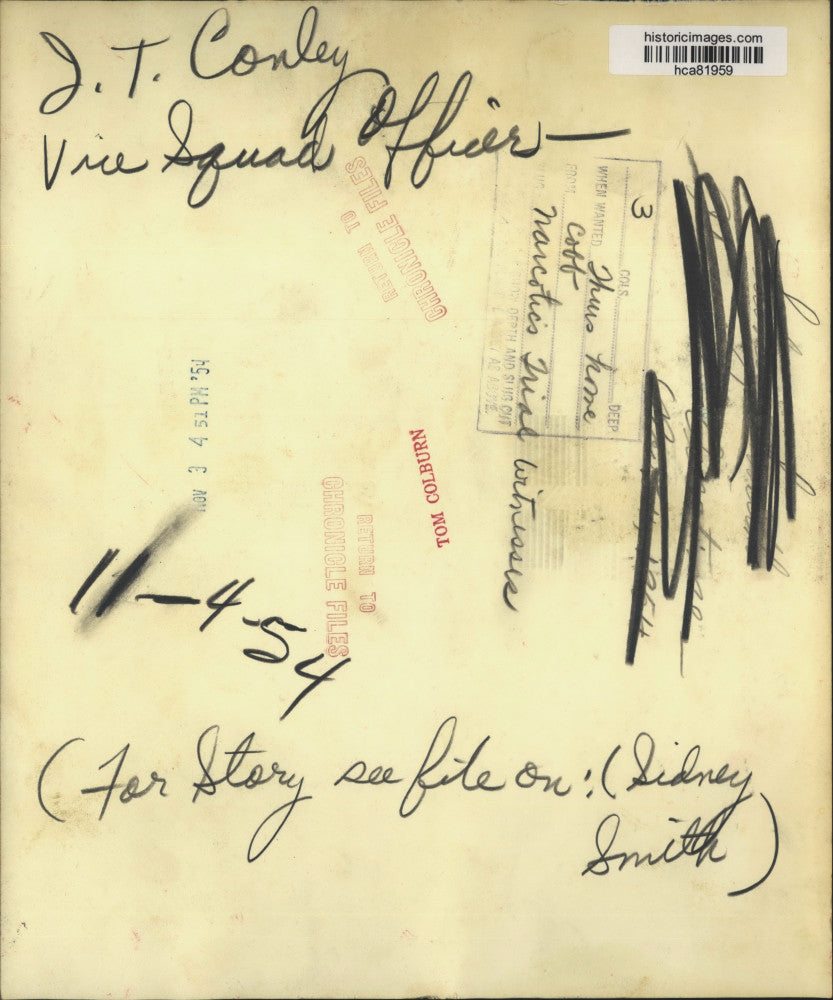 historicimages.com
hca81959
J. T. Conley
Vice Squad Officer —
RETURN TO
CHRONICLE FILES
3
COLS.
DEEP
WHEN WANTED Thurs home
FROM Cobb
SLUG Narcotics Trial Witnesses
DEPTH AND SLUG OUT
NOV 3 4 51 PM '54
TOM COLBURN
RETURN TO
CHRONICLE FILES
11-4-54
(For Story see file on: (Sidney
Smith)